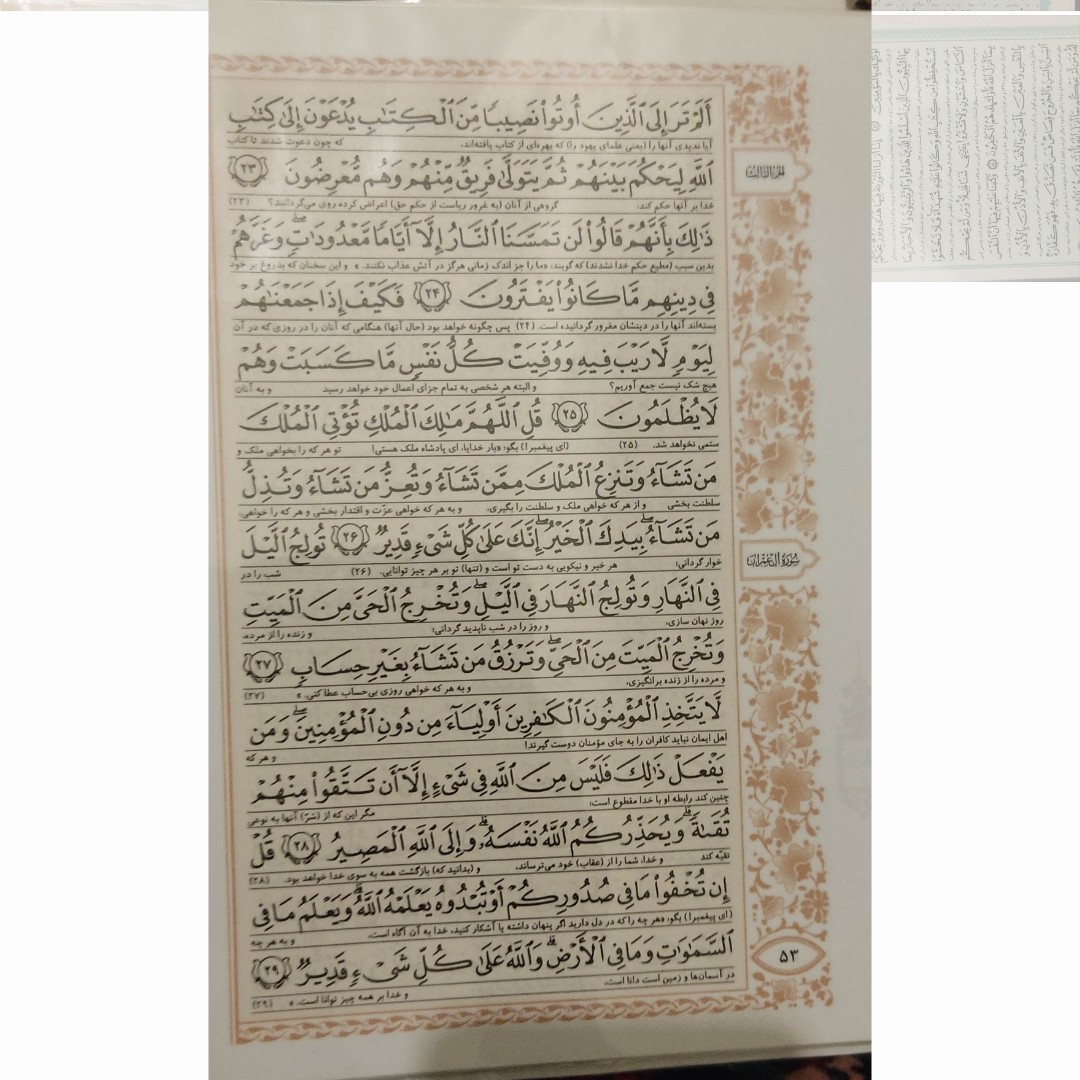 أَلَمْ تَرَ إِلَى ٱلَّذِينَ أُوتُوا۟ نَصِيبًا مِّنَ ٱلْكِتَٰبِ يُدْعَوْنَ إِلَىٰ كِتَٰبِ
آیا ندیدی آنها را (یعنی علمای یهود را) که بهره‌ای از کتاب یافته‌اند، که چون دعوت شدند تا کتاب
ٱللَّهِ لِيَحْكُمَ بَيْنَهُمْ ثُمَّ يَتَوَلَّىٰ فَرِيقٌ مِّنْهُمْ وَهُم مُّعْرِضُونَ ٢٣
الجزء الثالث
خدا بر آنها حکم کند، گروهی از آنان (به غرور ریاست از حکم حق) اعراض کرده روی می‌گردانند؟ (٢٣)
ذَٰلِكَ بِأَنَّهُمْ قَالُوا۟ لَن تَمَسَّنَا ٱلنَّارُ إِلَّآ أَيَّامًا مَّعْدُودَٰتٍ ۖ وَغَرَّهُمْ
بدین سبب (مطیع حکم خدا نشدند) که گویند: «ما را جز اندک زمانی هرگز در آتش عذاب نکنند.» و این سخنان که بدروغ بر خود
فِى دِينِهِم مَّا كَانُوا۟ يَفْتَرُونَ ٢٤ فَكَيْفَ إِذَا جَمَعْنَٰهُمْ
بسته‌اند آنها را در دینشان مغرور گردانیده است. (٢٤) پس چگونه خواهد بود (حال آنها) هنگامی که آنان را در روزی که در آن
لِيَوْمٍ لَّا رَيْبَ فِيهِ وَوُفِّيَتْ كُلُّ نَفْسٍ مَّا كَسَبَتْ وَهُمْ
هیچ شک نیست جمع آوریم؟ و البته هر شخصی به تمام جزای اعمال خود خواهد رسید و به آنان
لَا يُظْلَمُونَ ٢٥ قُلِ ٱللَّهُمَّ مَٰلِكَ ٱلْمُلْكِ تُؤْتِى ٱلْمُلْكَ
ستمی نخواهد شد. (٢٥) (ای پیغمبر!) بگو: «بار خدایا، ای پادشاه ملک هستی! تو هر که را بخواهی ملک و
مَن تَشَآءُ وَتَنزِعُ ٱلْمُلْكَ مِمَّن تَشَآءُ وَتُعِزُّ مَن تَشَآءُ وَتُذِلُّ
سلطنت بخشی و از هر که خواهی ملک و سلطنت را بگیری، و به هر که خواهی عزّت و اقتدار بخشی و هر که را خواهی،
مَن تَشَآءُ ۖ بِيَدِكَ ٱلْخَيْرُ ۖ إِنَّكَ عَلَىٰ كُلِّ شَىْءٍ قَدِيرٌ ٢٦ تُولِجُ ٱلَّيْلَ
سورة آل عمران
خوار گردانی؛ هر خیر و نیکویی به دست تو است و (تنها) تو بر هر چیز توانایی. (٢٦) شب را در
فِى ٱلنَّهَارِ وَتُولِجُ ٱلنَّهَارَ فِى ٱلَّيْلِ ۖ وَتُخْرِجُ ٱلْحَىَّ مِنَ ٱلْمَيِّتِ
روز نهان سازی، و روز را در شب ناپدید گردانی؛ و زنده را از مرده،
وَتُخْرِجُ ٱلْمَيِّتَ مِنَ ٱلْحَىِّ ۖ وَتَرْزُقُ مَن تَشَآءُ بِغَيْرِ حِسَابٍ ٢٧
و مرده را از زنده برانگیزی، و به هر که خواهی روزی بی‌حساب عطا کنی.» (٢٧)
لَّا يَتَّخِذِ ٱلْمُؤْمِنُونَ ٱلْكَٰفِرِينَ أَوْلِيَآءَ مِن دُونِ ٱلْمُؤْمِنِينَ ۖ وَمَن
اهل ایمان نباید کافران را به جای مؤمنان دوست گیرند! و هر که
يَفْعَلْ ذَٰلِكَ فَلَيْسَ مِنَ ٱللَّهِ فِى شَىْءٍ إِلَّآ أَن تَتَّقُوا۟ مِنْهُمْ
چنین کند رابطه او با خدا مقطوع است؛ مگر این که از (شرّ) آنها به نوعی
تُقَىٰةً ۗ وَيُحَذِّرُكُمُ ٱللَّهُ نَفْسَهُۥ ۗ وَإِلَى ٱللَّهِ ٱلْمَصِيرُ ٢٨ قُلْ
تقیّه کند و خدا، شما را از (عقاب) خود می‌ترساند، و (بدانید که) بازگشت همه به سوی خدا خواهد بود. (٢٨)
إِن تُخْفُوا۟ مَا فِى صُدُورِكُمْ أَوْ تُبْدُوهُ يَعْلَمْهُ ٱللَّهُ ۗ وَيَعْلَمُ مَا فِى
(ای پیغمبر!) بگو: «هر چه را که در دل دارید اگر پنهان داشته یا آشکار کنید، خدا به آن آگاه است، و به هر چه
ٱلسَّمَٰوَٰتِ وَمَا فِى ٱلْأَرْضِ ۗ وَٱللَّهُ عَلَىٰ كُلِّ شَىْءٍ قَدِيرٌ ٢٩
٥٣
در آسمان‌ها و زمین است دانا است، و خدا بر همه چیز توانا است.» (٢٩)